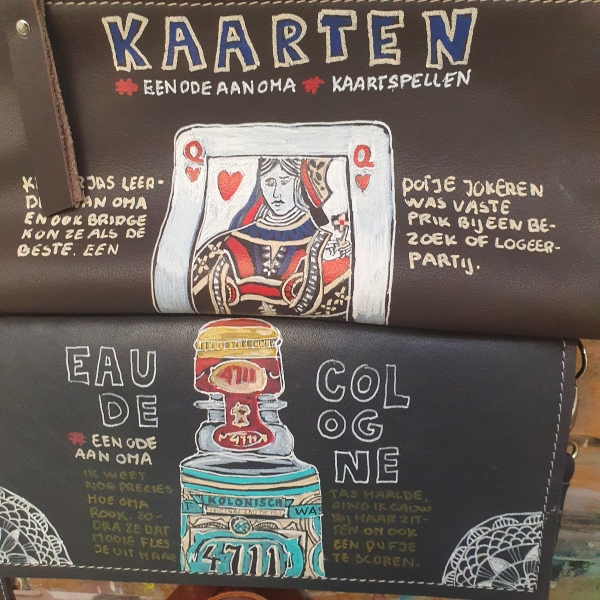 KAARTEN
#EENODEAANOMA #KAARTSPELLEN
Q
Q
JAS LEER-
AN OMA
EN OOK BRIDGE
KON ZE ALS DE
BESTE. EEN
POTJE JOKEREN
WAS VASTE
PRIK BIJ EEN BE-
ZOEK OF LOGEER-
PARTIJ.
EAU
DE
COL
OG
NE
#EENODE
AANOMA
IK WEET
NOG PRECIES
HOE OMA
ROOK. ZO-
DRA ZE DAT
MOOIE FLES
JE UIT HAAR
TAS HAALDE,
GING IK GAUW
BIJ HAAR ZIT-
TEN OM OOK
EEN PUFJE
TE SCOREN.
4711
4711
KÖLNISCH
4711